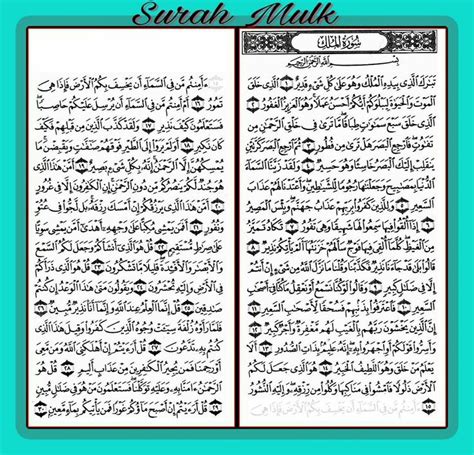 Surah Mulk
سُورَةُ المُلْكِ
بِسْمِ اللَّهِ الرَّحْمَٰنِ الرَّحِيمِ
تَبَٰرَكَ الَّذِى بِيَدِهِ الْمُلْكُ وَهُوَ عَلَىٰ كُلِّ شَىْءٍ قَدِيرٌ ١ الَّذِى خَلَقَ
الْمَوْتَ وَالْحَيَوٰةَ لِيَبْلُوَكُمْ أَيُّكُمْ أَحْسَنُ عَمَلًا وَهُوَ الْعَزِيزُ الْغَفُورُ ٢
الَّذِى خَلَقَ سَبْعَ سَمَٰوَٰتٍ طِبَاقًا مَّا تَرَىٰ فِى خَلْقِ الرَّحْمَٰنِ مِن
تَفَٰوُتٍ فَارْجِعِ الْبَصَرَ هَلْ تَرَىٰ مِن فُطُورٍ ٣ ثُمَّ ارْجِعِ الْبَصَرَ كَرَّتَيْنِ
يَنقَلِبْ إِلَيْكَ الْبَصَرُ خَاسِئًا وَهُوَ حَسِيرٌ ٤ وَلَقَدْ زَيَّنَّا السَّمَآءَ
الدُّنْيَا بِمَصَٰبِيحَ وَجَعَلْنَٰهَا رُجُومًا لِّلشَّيَٰطِينِ وَأَعْتَدْنَا لَهُمْ عَذَابَ
السَّعِيرِ ٥ وَلِلَّذِينَ كَفَرُوا۟ بِرَبِّهِمْ عَذَابُ جَهَنَّمَ وَبِئْسَ الْمَصِيرُ
٦ إِذَآ أُلْقُوا۟ فِيهَا سَمِعُوا۟ لَهَا شَهِيقًا وَهِىَ تَفُورُ ٧ تَكَادُ تَمَيَّزُ
مِنَ الْغَيْظِ كُلَّمَآ أُلْقِىَ فِيهَا فَوْجٌ سَأَلَهُمْ خَزَنَتُهَآ أَلَمْ يَأْتِكُمْ نَذِيرٌ ٨
قَالُوا۟ بَلَىٰ قَدْ جَآءَنَا نَذِيرٌ فَكَذَّبْنَا وَقُلْنَا مَا نَزَّلَ اللَّهُ مِن شَىْءٍ إِنْ أَنتُمْ
إِلَّا فِى ضَلَٰلٍ كَبِيرٍ ٩ وَقَالُوا۟ لَوْ كُنَّا نَسْمَعُ أَوْ نَعْقِلُ مَا كُنَّا فِىٓ أَصْحَٰبِ
السَّعِيرِ ١٠ فَاعْتَرَفُوا۟ بِذَنۢبِهِمْ فَسُحْقًا لِّأَصْحَٰبِ السَّعِيرِ
١١ إِنَّ الَّذِينَ يَخْشَوْنَ رَبَّهُم بِالْغَيْبِ لَهُم مَّغْفِرَةٌ وَأَجْرٌ كَبِيرٌ ١٢
وَأَسِرُّوا۟ قَوْلَكُمْ أَوِ اجْهَرُوا۟ بِهِۦٓ إِنَّهُۥ عَلِيمٌۢ بِذَاتِ الصُّدُورِ ١٣ أَلَا يَعْلَمُ
مَنْ خَلَقَ وَهُوَ اللَّطِيفُ الْخَبِيرُ ١٤ هُوَ الَّذِى جَعَلَ لَكُمُ الْأَرْضَ
ذَلُولًا فَامْشُوا۟ فِى مَنَاكِبِهَا وَكُلُوا۟ مِن رِّزْقِهِۦ وَإِلَيْهِ النُّشُورُ
١٥ ءَأَمِنتُم مَّن فِى السَّمَآءِ أَن يَخْسِفَ بِكُمُ الْأَرْضَ فَإِذَا هِىَ
ءَأَمِنتُم مَّن فِى السَّمَآءِ أَن يَخْسِفَ بِكُمُ الْأَرْضَ فَإِذَا هِىَ
تَمُورُ ١٦ أَمْ أَمِنتُم مَّن فِى السَّمَآءِ أَن يُرْسِلَ عَلَيْكُمْ حَاصِبًا
فَسَتَعْلَمُونَ كَيْفَ نَذِيرِ ١٧ وَلَقَدْ كَذَّبَ الَّذِينَ مِن قَبْلِهِمْ فَكَيْفَ
كَانَ نَكِيرِ ١٨ أَوَلَمْ يَرَوْا۟ إِلَى الطَّيْرِ فَوْقَهُمْ صَٰٓفَّٰتٍ وَيَقْبِضْنَ مَا
يُمْسِكُهُنَّ إِلَّا الرَّحْمَٰنُ إِنَّهُۥ بِكُلِّ شَىْءٍۭ بَصِيرٌ ١٩ أَمَّنْ هَٰذَا الَّذِى
هُوَ جُندٌ لَّكُمْ يَنصُرُكُم مِّن دُونِ الرَّحْمَٰنِ إِنِ الْكَٰفِرُونَ إِلَّا فِى غُرُورٍ
٢٠ أَمَّنْ هَٰذَا الَّذِى يَرْزُقُكُمْ إِنْ أَمْسَكَ رِزْقَهُۥ بَل لَّجُّوا۟ فِى عُتُوٍّ
وَنُفُورٍ ٢١ أَفَمَن يَمْشِى مُكِبًّا عَلَىٰ وَجْهِهِۦٓ أَهْدَىٰٓ أَمَّن يَمْشِى سَوِيًّا
عَلَىٰ صِرَٰطٍ مُّسْتَقِيمٍ ٢٢ قُلْ هُوَ الَّذِىٓ أَنشَأَكُمْ وَجَعَلَ لَكُمُ السَّمْعَ
وَالْأَبْصَٰرَ وَالْأَفْـِٔدَةَ قَلِيلًا مَّا تَشْكُرُونَ ٢٣ قُلْ هُوَ الَّذِى ذَرَأَكُمْ
فِى الْأَرْضِ وَإِلَيْهِ تُحْشَرُونَ ٢٤ وَيَقُولُونَ مَتَىٰ هَٰذَا الْوَعْدُ إِن كُنتُمْ
صَٰدِقِينَ ٢٥ قُلْ إِنَّمَا الْعِلْمُ عِندَ اللَّهِ وَإِنَّمَآ أَنَا۠ نَذِيرٌ مُّبِينٌ ٢٦
فَلَمَّا رَأَوْهُ زُلْفَةً سِيٓـَٔتْ وُجُوهُ الَّذِينَ كَفَرُوا۟ وَقِيلَ هَٰذَا الَّذِى
كُنتُم بِهِۦ تَدَّعُونَ ٢٧ قُلْ أَرَءَيْتُمْ إِنْ أَهْلَكَنِىَ اللَّهُ وَمَن مَّعِىَ أَوْ
رَحِمَنَا فَمَن يُجِيرُ الْكَٰفِرِينَ مِنْ عَذَابٍ أَلِيمٍ ٢٨ قُلْ هُوَ
الرَّحْمَٰنُ ءَامَنَّا بِهِۦ وَعَلَيْهِ تَوَكَّلْنَا فَسَتَعْلَمُونَ مَنْ هُوَ فِى ضَلَٰلٍ مُّبِينٍ
٢٩ قُلْ أَرَءَيْتُمْ إِنْ أَصْبَحَ مَآؤُكُمْ غَوْرًا فَمَن يَأْتِيكُم بِمَآءٍ مَّعِينٍۭ ٣٠